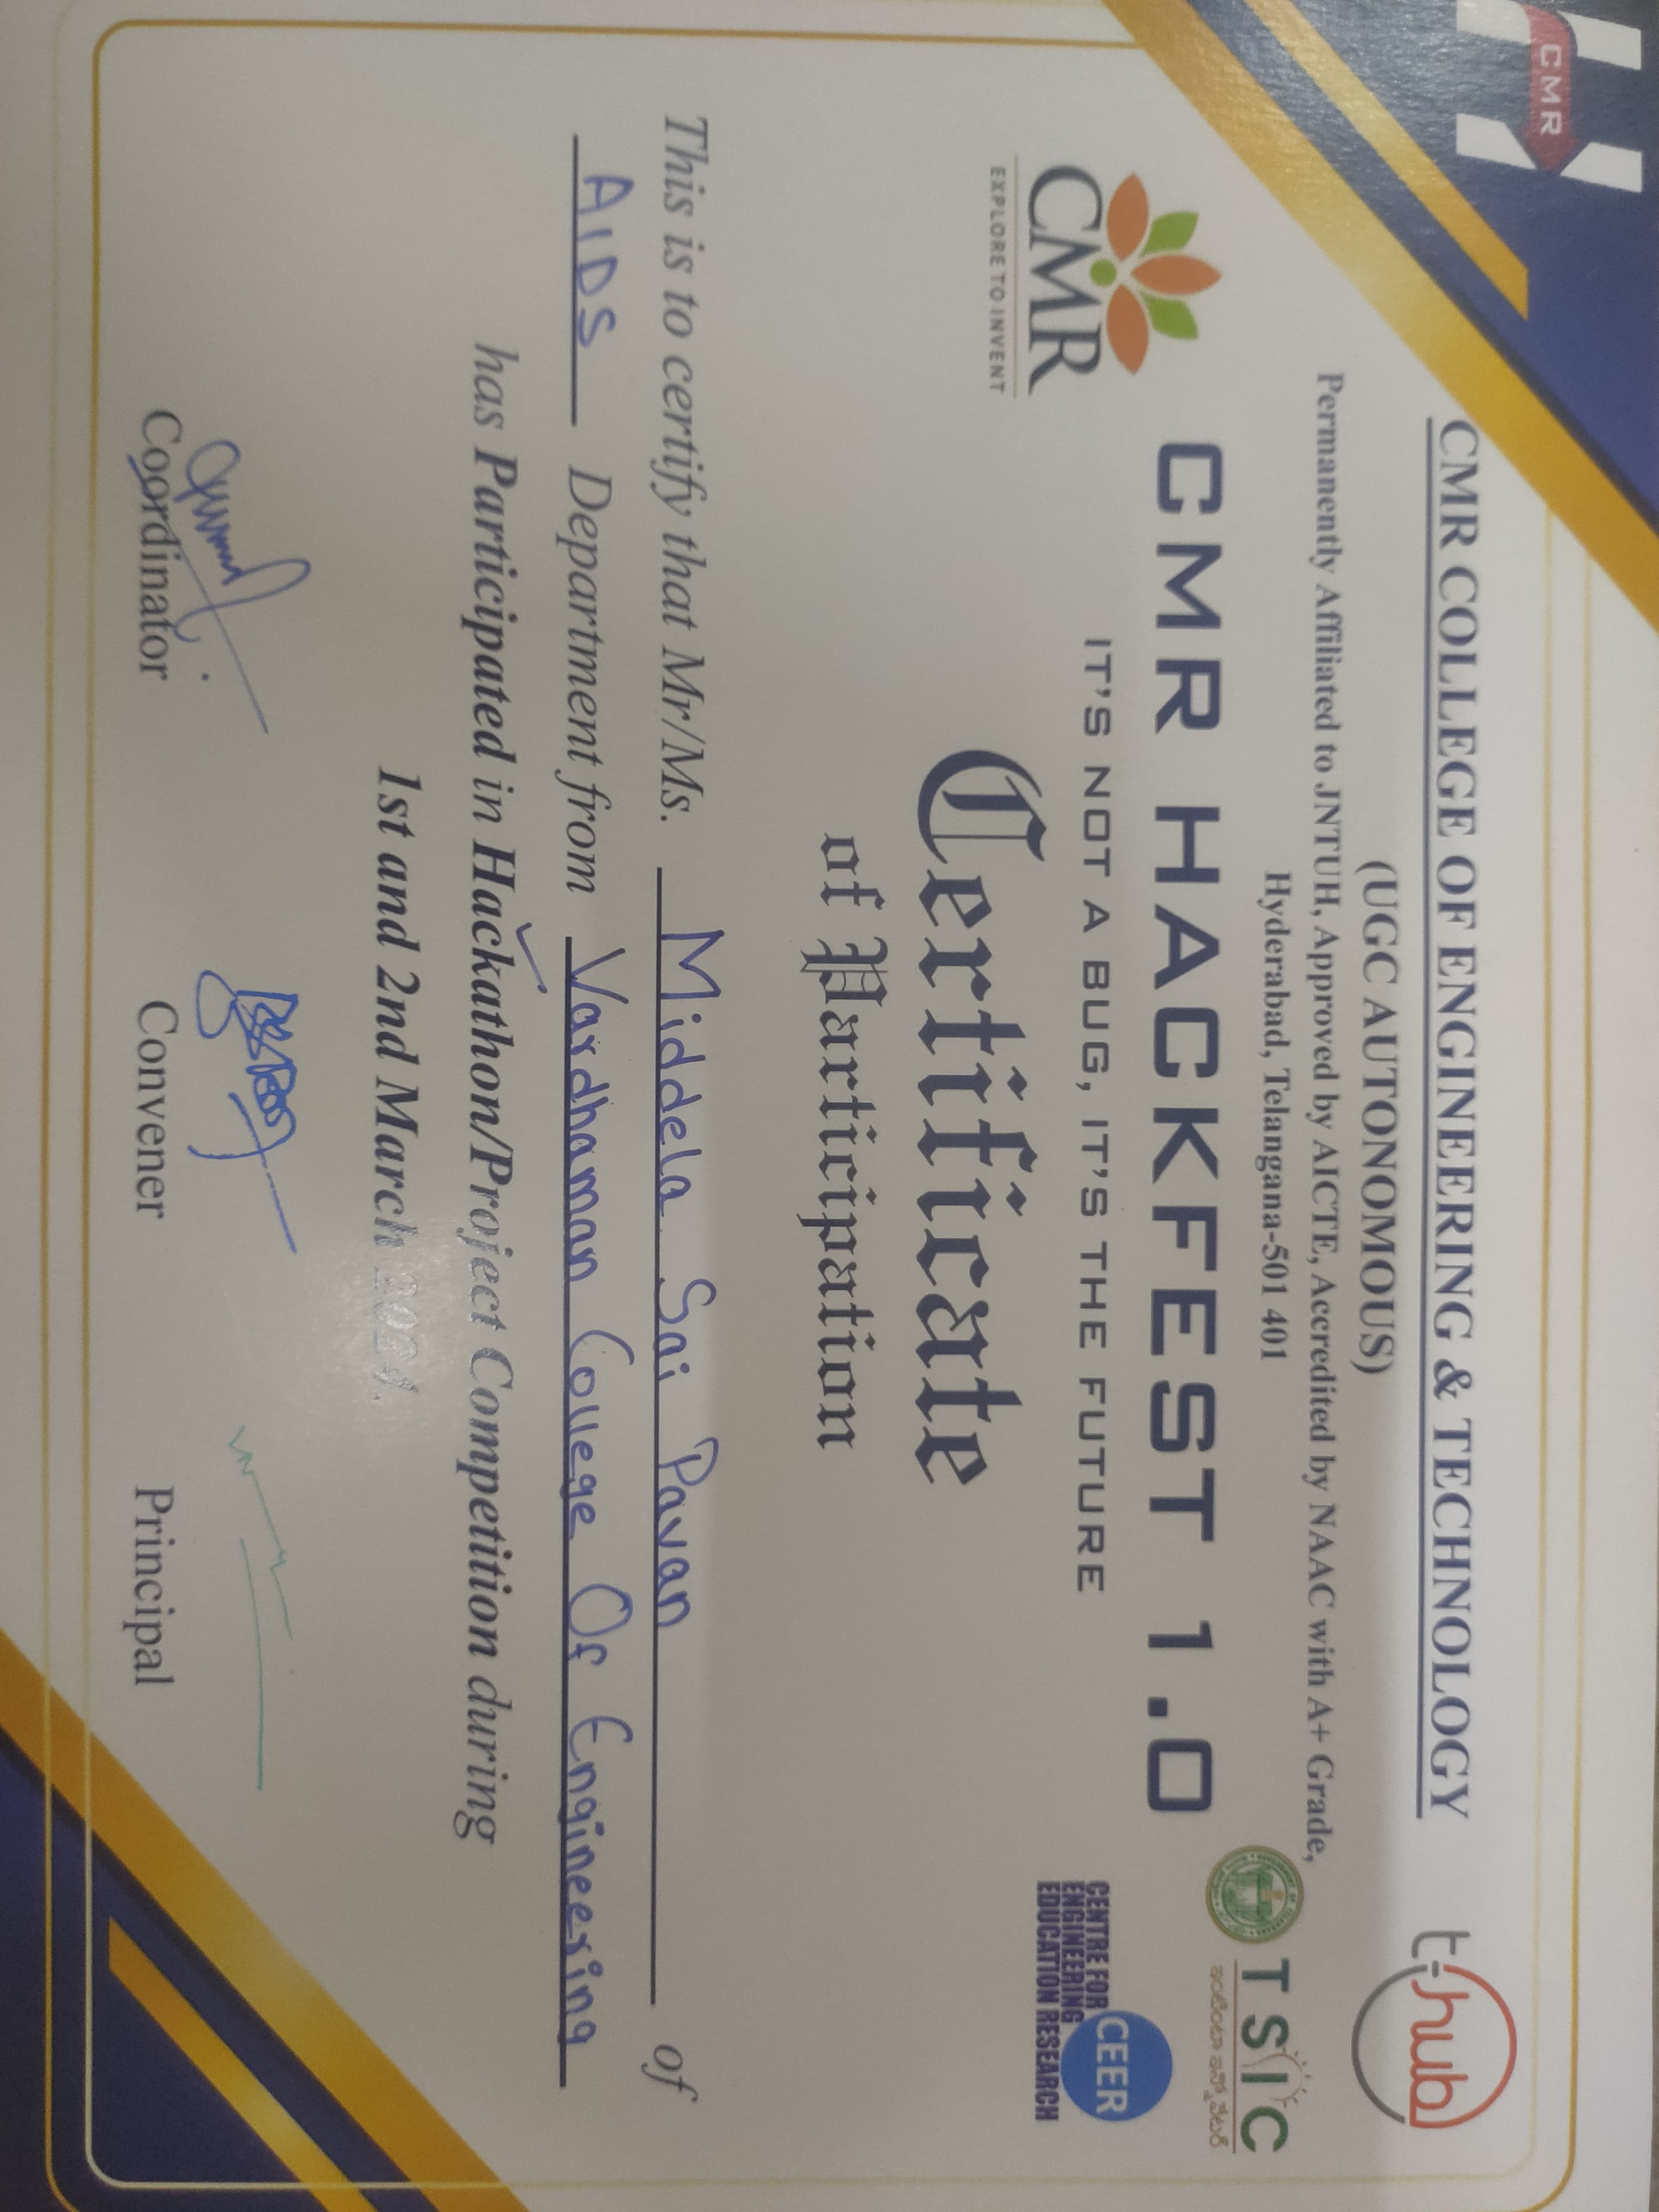 CMR
CMR COLLEGE OF ENGINEERING & TECHNOLOGY
t-hub
(UGC AUTONOMOUS)
Permanently Affiliated to JNTUH, Approved by AICTE, Accredited by NAAC with A+ Grade,
Hyderabad, Telangana-501 401
TSIC
ఇంటింటా ఇన్నోవేటర్
CMR HACKFEST 1.0
IT'S NOT A BUG, IT'S THE FUTURE
CMR
EXPLORE TO INVENT
CEER
CENTRE FOR
ENGINEERING
EDUCATION RESEARCH
Certificate
of Participation
This is to certify that Mr/Ms. Middela Sai Pavan of
AIDS Department from Vardhaman College Of Engineering
has Participated in Hackathon/Project Competition during
1st and 2nd March 2024.
Coordinator
Convener
Principal